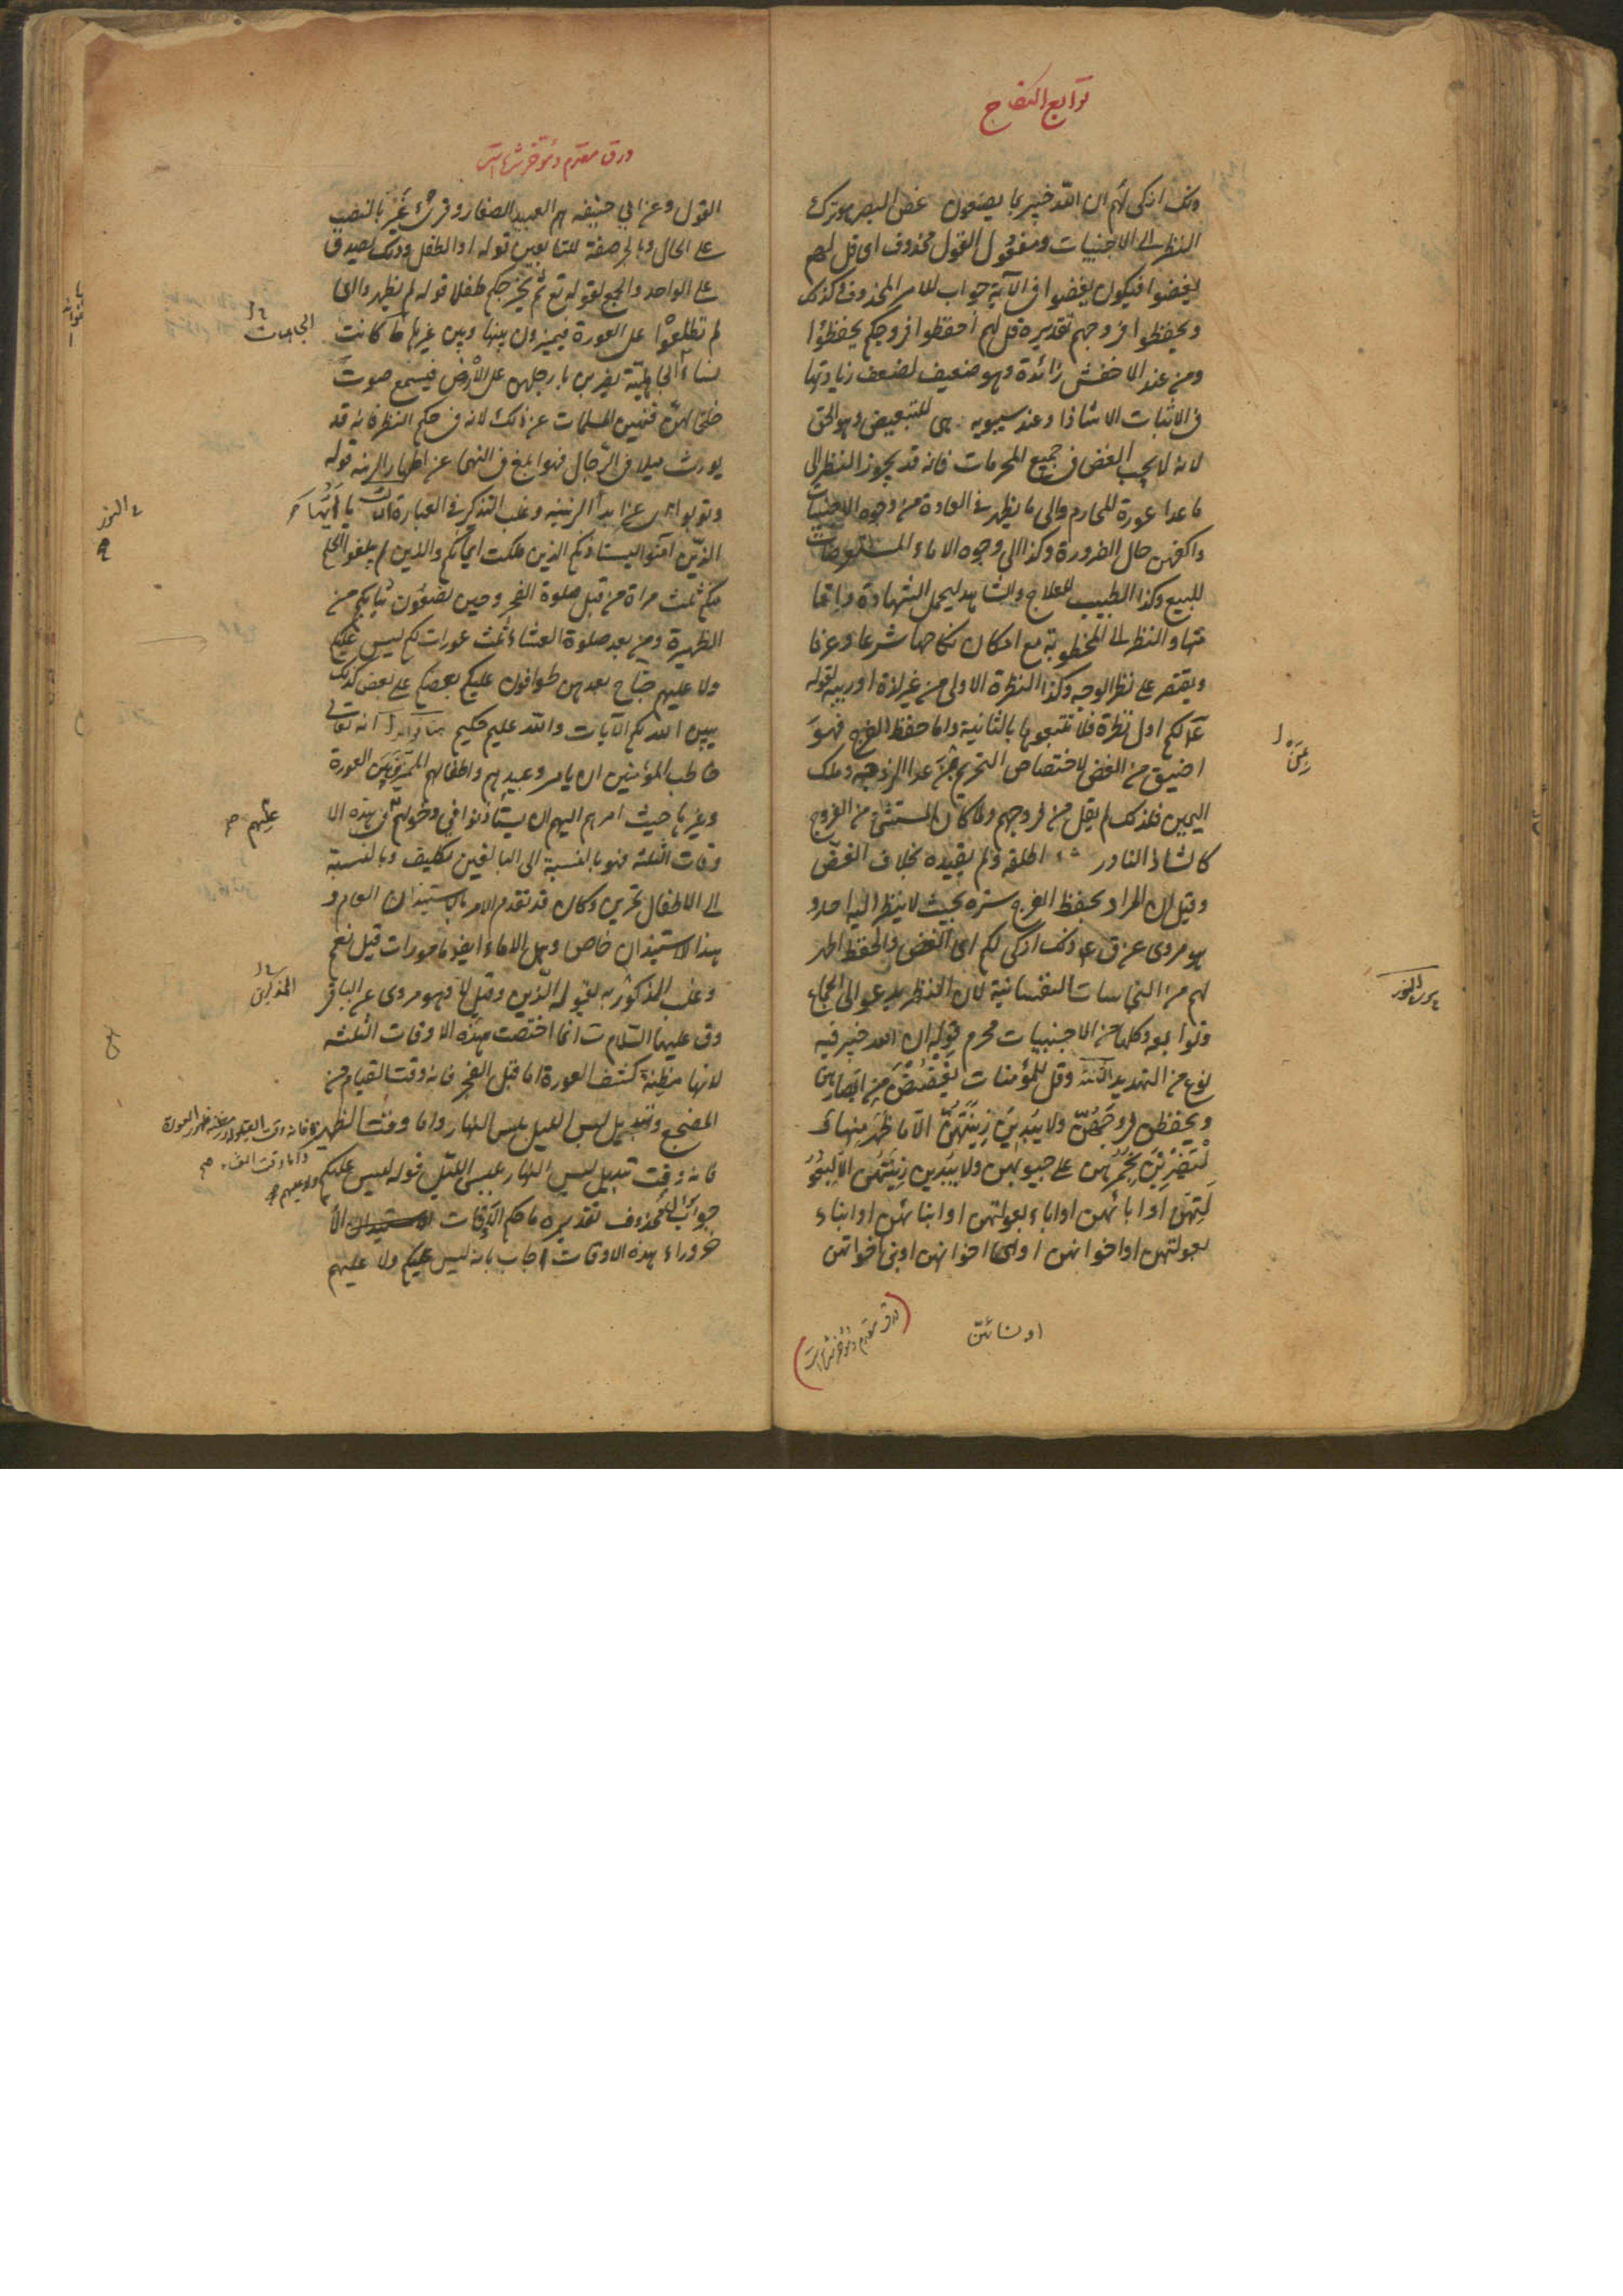 توابع النکاح
ذلک ازکی لهم ان الله خبیر بما یصنعون غض البصر هو ترک
النظر الی الاجنبیات ومفعول القول محذوف ای قل لهم
لیغضوا فیکون یغضوا فی الآیة جواب للامر المحذوف وکذلک
ویحفظوا فروجهم تقدیره قل لهم احفظوا فروجکم یحفظوا
ومن عند الاخفش زائدة وهو ضعیف لضعف زیادتها
فی الاثبات الا شاذا وعند سیبویه هی للتبعیض وهو الحق
لانه لا یجب الغض فی جمیع المحرمات فانه قد یجوز النظر الی
ما عدا عورة للمحارم والی ما یظهر فی العادة من وجوه الاجنبیات
واکفهن حال الضرورة وکذا الی وجوه الاماء المستعرضات
للبیع وکذا الطبیب للعلاج والشاهد لیحمل الشهادة
والنظر الی المخطوبة مع امکان نکاحها شرعا وعرفا
ویقتصر علی نظر الوجه وکذا النظرة الاولی من غیر لذة او ریبة لقوله
لکم اول نظرة فلا تتبعوها بالثانیة واما حفظ الفرج فهو
اضیق من الغض لاختصاص التحریم بمن عدا الزوجة وملک
الیمین فلذلک لم یقل من فروجهم ولما کان المستثنی من الفروج
کالشاذ النادر اطلقه ولم یقیده بخلاف الغض
وقیل ان المراد بحفظ الفرج ستره بحیث لا ینظر الیه احد و
هو مروی عن ق ع ذلک ازکی لکم ای الغض والحفظ اطهر
لهم من النجاسات النفسانیة لان النظر یدعو الی الجماع
وتوابعه وکلها من الاجنبیات محرم قوله ان الله خبیر فیه
نوع من التهدید الثانیة وقل للمؤمنات یغضضن من ابصارهن
ویحفظن فروجهن ولا یبدین زینتهن الا ما ظهر منها و
لیضربن بخمرهن علی جیوبهن ولا یبدین زینتهن الا لبعو
لتهن او ابائهن او اباء بعولتهن او ابنائهن او ابناء
بعولتهن او اخوانهن او بنی اخوانهن او بنی اخواتهن
او نسائهن
(ورق مقدم و مؤخر شده است)
ورق مقدم و مؤخر شده است
القول وعن ابی حنیفه هم العبید الصغار وقرئ غیر بالنصب
علی الحال وبالجر صفة للتابعین قوله او الطفل وذلک یصدق
علی الواحد والجمع لقوله تع ثم یخرجکم طفلا قوله لم یظهروا ای
لم تطلعوا علی العورة فیمیزون بینها وبین غیرها کانت
نساء الجاهلیة یضربن بارجلهن علی الارض فیسمع صوت
خلخالهن فنهین المسلمات عن ذلک لانه فی حکم النظر فانه قد
یورث میلا فی الرجال فهو ابلغ فی النهی عن اظهار الزینة قوله
وتوبوا ای عن ابداء الزینة وغلب التذکیر فی العبارة الثالثة یا ایها
الذین آمنوا لیستأذنکم الذین ملکت ایمانکم والذین لم یبلغوا الحلم
منکم ثلث مراة من قبل صلوة الفجر وحین تضعون ثیابکم من
الظهیرة ومن بعد صلوة العشاء ثلث عورات لکم لیس علیکم
ولا علیهم جناح بعدهن طوافون علیکم بعضکم علی بعض کذلک
یبین الله لکم الآیات والله علیم حکیم انه تعالی
خاطب المؤمنین ان یامر وعبیدهم واطفالهم الممیزین بین العورة
وغیرها حیث امرهم الیهم ان یستأذنوا فی دخولهم فی هذه الا
وقات الثلثة فهو بالنسبة الی البالغین تکلیف وبالنسبة
الی الاطفال تمرین وکان قد تقدم الامر بالاستیذان العام و
هذا الاستیذان خاص وهل الاماء ایضا مامورات قیل نعم
وغلب المذکور به لقوله الذین وقیل لا فهو مروی عن الباقر
وق علیهما السلام انما اختصت بهذه الاوقات الثلثه
لانها مظنة کشف العورة اما قبل الفجر فانه وقت القیام من
المضجع وتبدیل لبس اللیل بلبس النهار واما وقت الظهیرة
فانه وقت تبدیل لبس النهار بلبس اللیل قوله لیس علیکم ولا علیهم
جواب محذوف تقدیره ما حکم الاوقات الا
خر وراء هذه الاوقات اجاب بانه لیس علیکم ولا علیهم
الجاهلیات
علیهم صح
واما وقت العشاء صح